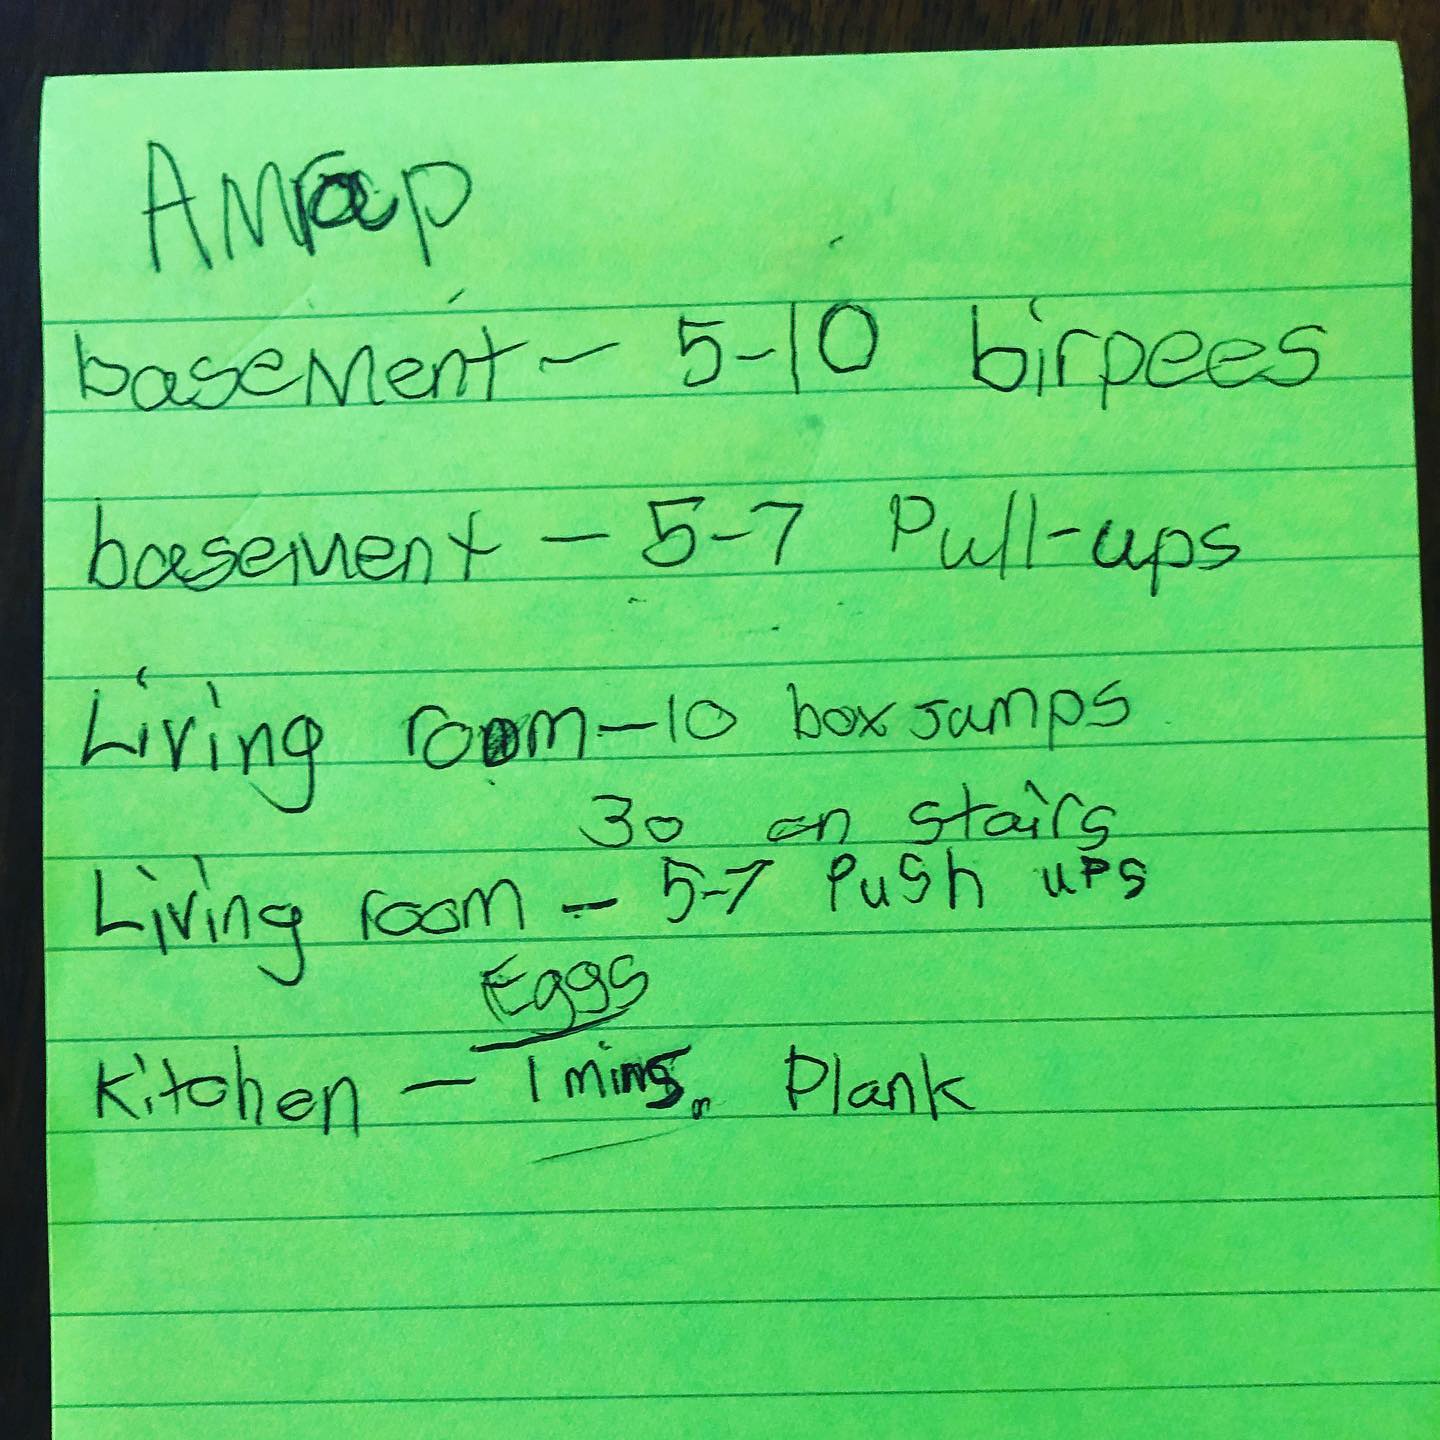 AMrap
basement - 5-10 birpees
basement - 5-7 Pull-ups
Living room - 10 box jumps
30 on stairs
Living room - 5-7 Push ups
Eggs
Kitchen - 1 mins. Plank